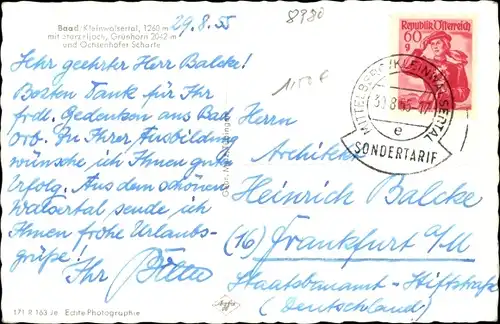 Baad/Kleinwalsertal, 1260 m
mit Starzeljoch, Grünhorn 2042 m
und Ochsenhofer Scharte
29.8.55
8980
Sehr geehrter Herr Balcke!
Besten Dank für Ihr
frdl. Gedenken aus Bad
Orb. In Ihrer Ausbildung
wünsche ich Ihnen guten
Erfolg. Aus dem schönen
Walsertal sende ich
Ihnen frohe Urlaubs-
grüße!
Ihr
171 R 163 Je Echte Photographie
Agfa
Republik Österreich
60
g
MITTELBERG (KLEINWALSERTAL)
30.8.55-17
e
SONDERTARIF
Herrn
Architekt
Heinrich Balcke
(16) Frankfurt a/M
Staatsbauamt - Stiftstraße
(Deutschland)